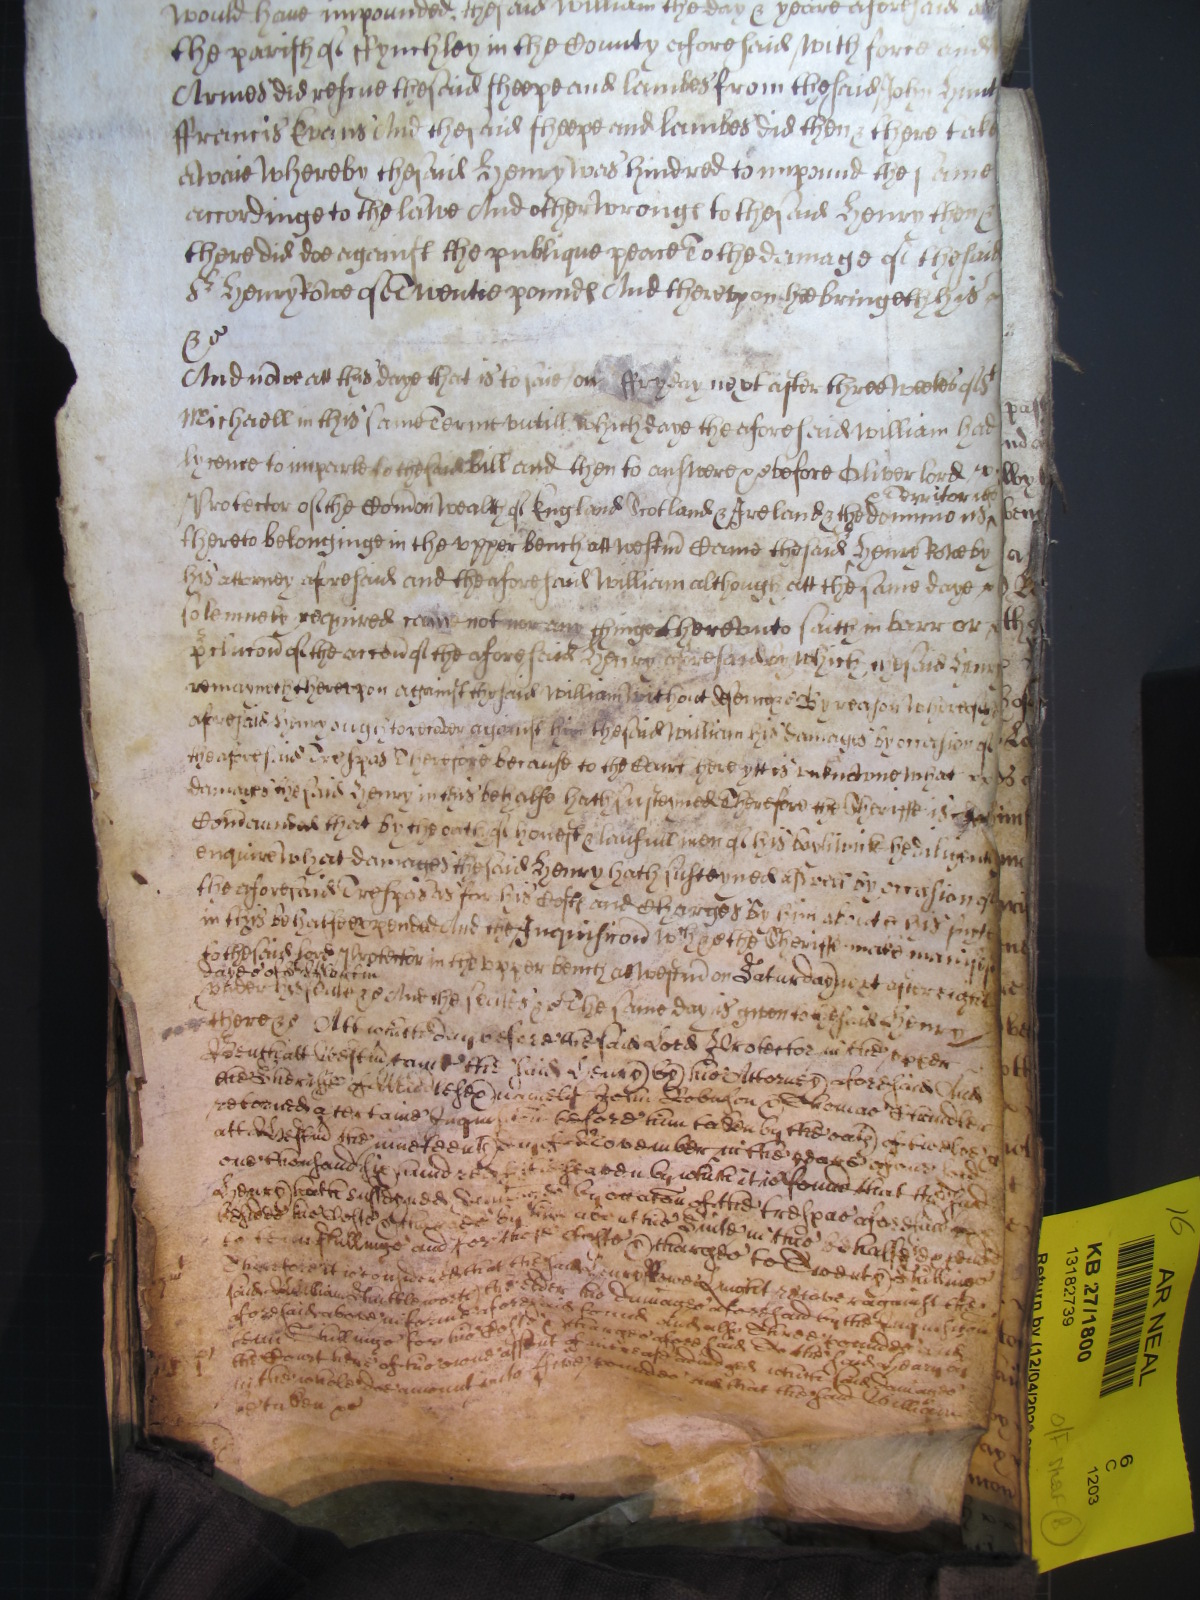 would have impounded. the said William the day & yeare aforesaid at
the parish of ffynchley in the County aforesaid with force and
Armes did rescue the said sheepe and lambes from the said John Hunt
ffrancis Evans And the said sheepe and lambes did then & there take
awaie whereby the said Henry was hindred to impound the same
accordinge to the lawe And other wronges to the said Henry then &
there did doe against the publique peace To the damage of the said
Sr Henry Rowe of Twentie pounds And thereupon hee bringeth his
&c
And nowe att this daye that is to saie on ffryday next after three weekes of St
Michaell in this same Terme untill which daye the aforesaid William had
lycence to imparle to the said bill and then to answere &c before Oliver lord
Protector of the Comon Wealth of England Scotland & Ireland & the dominions
& Territories
thereto belonginge in the upper bench att Westm Came the said Henry Rowe by
his attorney aforesaid and the aforesaid William although att the same daye
solemnely required came not nor any thinge thereunto saith in barr or
preclucon of the accon of the aforesaid Henry aforesaid by which the said Henry
remayneth thereupon against the said William without defence By reason whereof
aforesaid Henry ought to recover against him the said William his damages by occasion of
the aforesaid Trespas Therefore because to the Court here ytt is unknowne what
damages the said Henry in this behalfe hath susteyned Therefore the Sheriffe is
Comaunded that by the oath of honest & lawfull men of his bayliwick he diligently
enquire what damages the said Henry hath susteyned aswell by occasion of
the aforesaid Trespas as for his Costs and Charges by him about his suite
in this behalfe expended And the Inquisicon wch &c the Sheriffe make
to the said lord Protector in the upper bench at Westm on Saturday next after eight
dayes of St Martin
under his seale &c And the seales &c The same day is given to the said Henry
there &c Att which day before the said Lord Protector in the upper
Bench att Westm came the said Henry by his Attorney aforesaid And
the Sheriffe of Middlesex namely John Robinson & Thomas
retorned a certaine Inquisicon before him taken by the oath of twelve
att Westm the nineteenth day of November in the yeare of our lord
one thousand six hundred by which it is found that the said
Henry hath susteyned damages by occasion of the trespas aforesaid
besides his Costs & Charges by him about his Suite in this behalfe expended
to tenn shillings and for those Costs & Charges to Twenty shillings
Therefore it is considered that the said Henry Rowe ought recover against the
said William Shuttleworth the elder his damages aforesaid by the Inquisicon
aforesaid above in forme aforesaid found And alsoe Three poundes and
tenn shillings for his Costs & Charges aforesaid to the said Henry by
the Court here of his owne assent of increase adjudged which said damages
in the whole doe amount unto Five poundes and that the said William
be taken &c
AR NEAL
KB 27/1800
13182739
6
C
1203
16